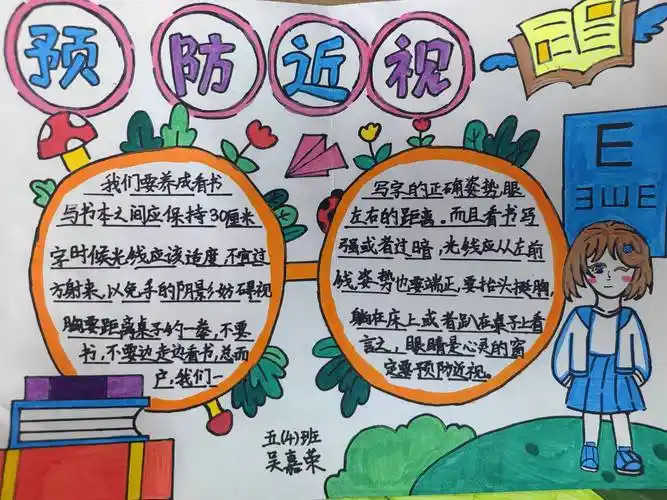 预防近视
我们要养成看书
与书本之间应保持30厘米
字时候光线应该适度,不宜过
方射来,以免手的阴影妨碍视
胸要距离桌子约一拳,不要
书,不要边走边看书,总而
户,我们一
写字的正确姿势,眼
左右的距离。而且看书写
强或者过暗,光线应从左前
线,姿势也要端正,要抬头挺胸,
躺在床上或者趴在桌子上看
言之,眼睛是心灵的窗
定要预防近视。
E
ƎШE
五(4)班
吴嘉荣